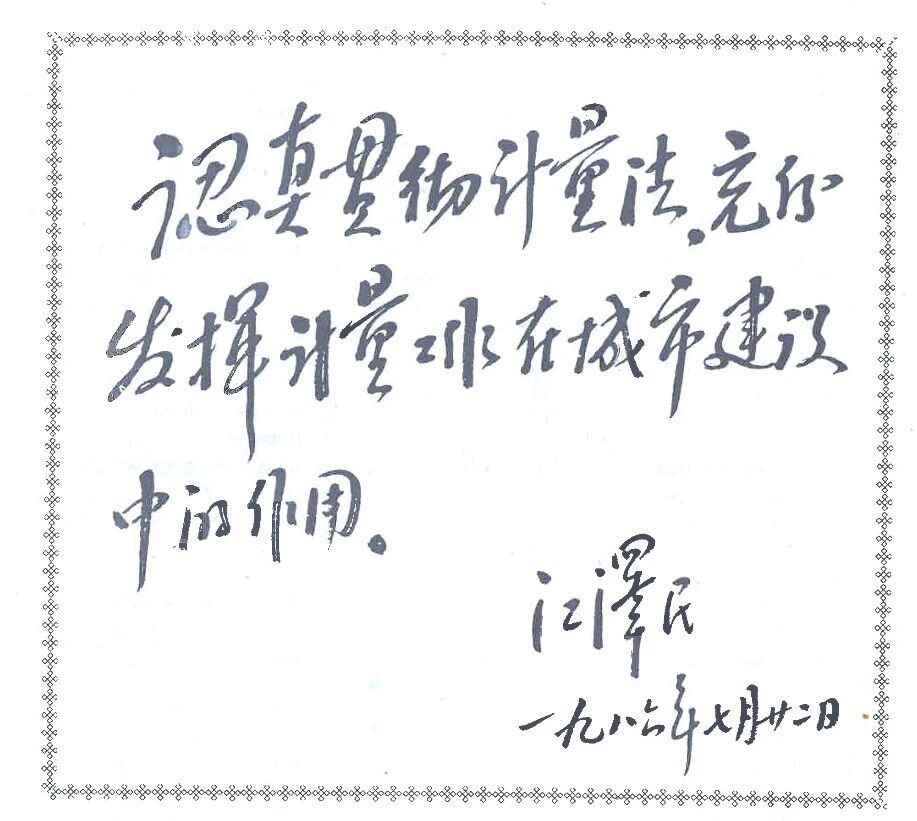 認真贯彻计量法,充分
发挥计量工作在城市建设
中的作用。
江澤民
一九八六年七月廿二日